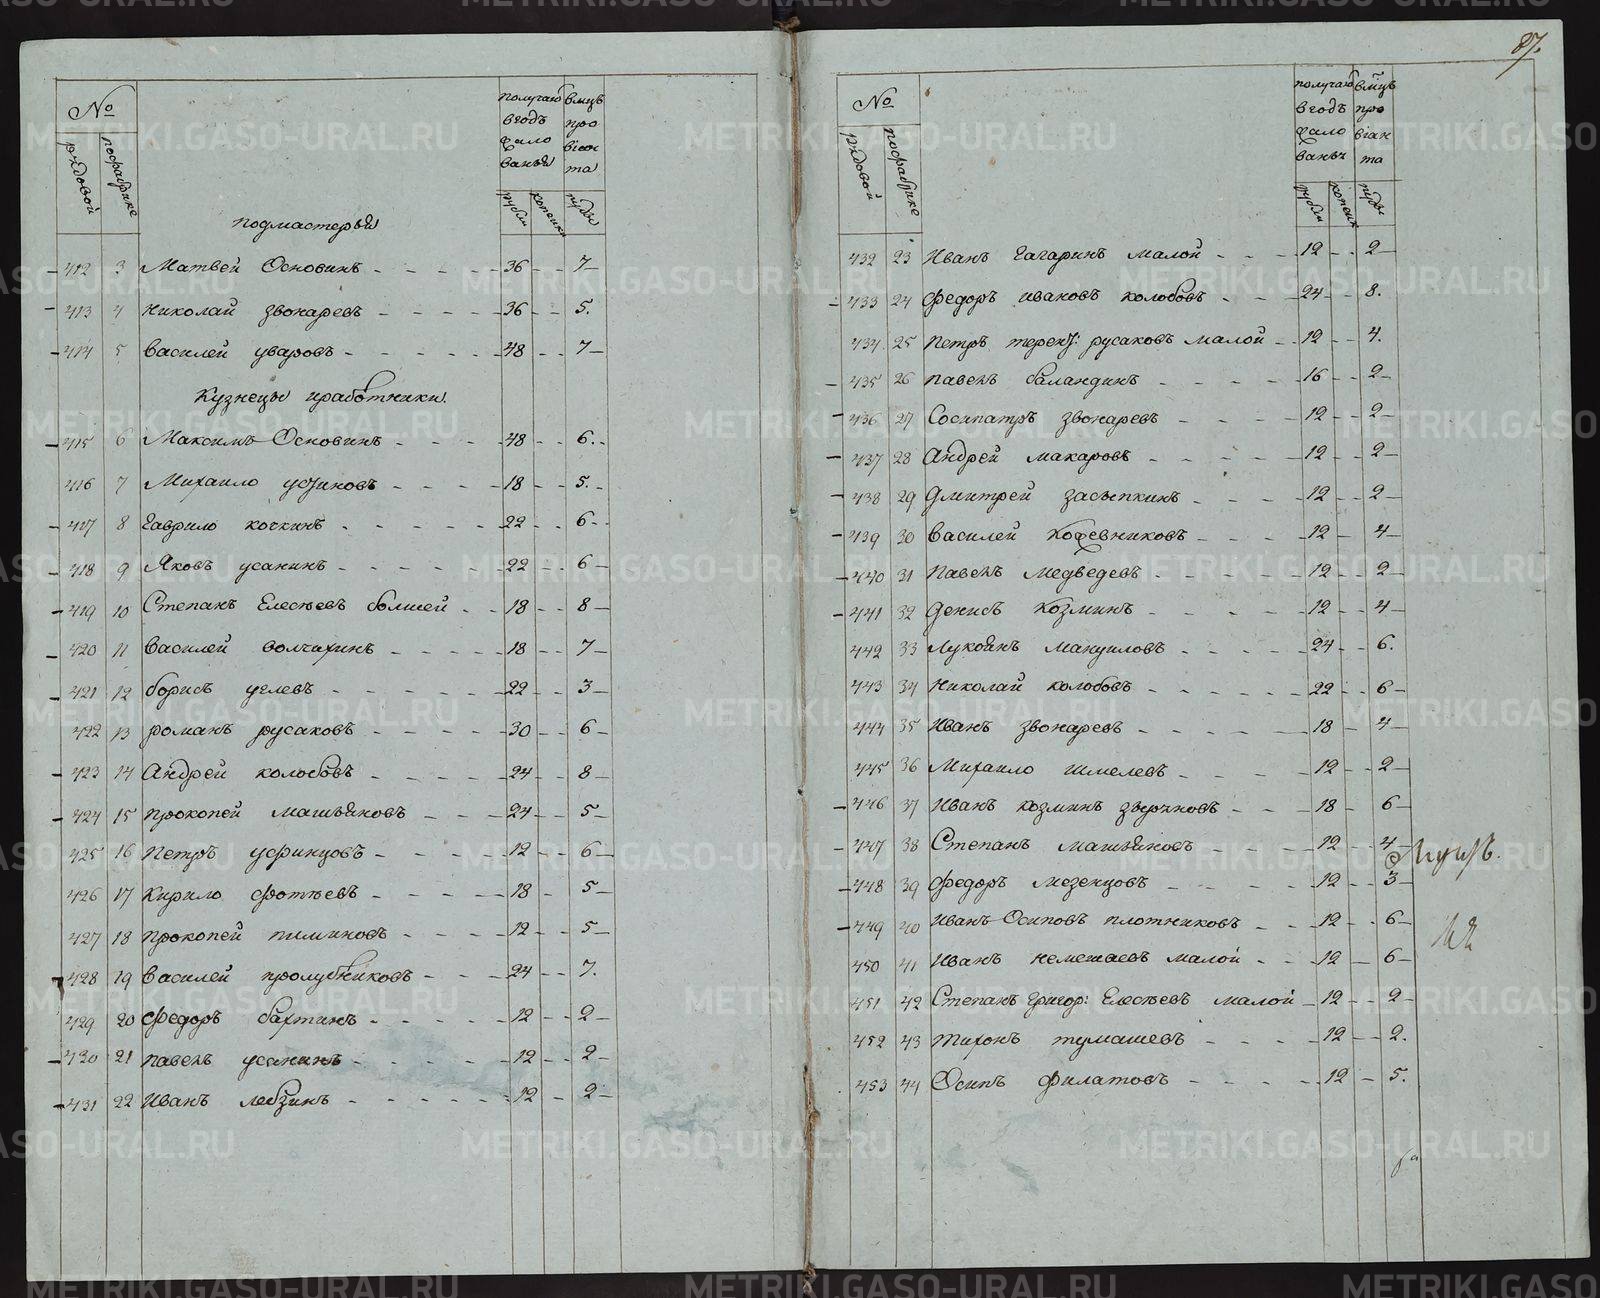 №
рядовой
по фабрике
получаю
в годъ
жало
ванья
в мцъ
про
вiан
та
рубли
копеики
пуды
подмастерья
412 3 Матвей Основинъ - - - - 36 - - 7 -
413 4 Николай звонаревъ - - - - 36 - - 5.
414 5 Василей уваровъ - - - - 48 - - 7 -
Кузнецы и работники
415 6 Максимъ Основинъ - - - - 48 - - 6. -
416 7 Михаило устиновъ - - - - 18 - - 5. -
417 8 Гаврило кочкинъ - - - - 22 - - 6 - -
418 9 Яковъ усанинъ - - - - 22 - - 6 -
419 10 Степанъ Елесѣевъ болшей - - 18 - - 8 -
420 11 Василей волчихинъ - - - - 18 - - 7 -
421 12 борисъ углевъ - - - - 22 - - 3 -
422 13 романъ русаковъ - - - - 30 - - 6 -
423 14 Андрей колобовъ - - - - 24 - - 8 -
424 15 прокопей машьяновъ - - - 24 - - 5 -
425 16 Петръ усфинцовъ - - - - 12 - - 6 -
426 17 Кирило фотѣевъ - - - - 18 - - 5 -
427 18 прокопей пиминовъ - - - - 12 - - 5 -
428 19 Василей пролубниковъ - - - 24 - - 7.
429 20 Федоръ бахтинъ - - - - 12 - - 2 -
430 21 павелъ усанинъ - - - - 12 - - 2 -
431 22 Иванъ лебзинъ - - - - 12 - 2 -
87.
№
рядовой
по фабрике
получаю
в годъ
жало
ванья
в мцъ
про
вiан
та
рубли
копеик
пуды
432 23 Иванъ Гагаринъ малой - - - 12 - - 2 -
433 24 Федоръ ивановъ колобовъ - - - 24 - - 8.
434 25 Петръ терент: русаковъ малой - - 12 - - 4.
435 26 павелъ баландинъ - - - - 16 - - 2 -
436 27 Сосипатръ звонаревъ - - - - 12 - - 2 -
437 28 Андрей макаровъ - - - - 12 - - 2 -
438 29 Дмитрей засыпкинъ - - - - 12 - - 2 -
439 30 Василей Кожевниковъ - - - - 12 - 4 -
440 31 Павелъ Медведевъ - - - - 12 - - 2 -
441 32 Денисъ Козминъ - - - - 12 - - 4 -
442 33 Лукоянъ Мануиловъ - - - - 24 - - 6.
443 34 Николай колобовъ - - - - 22 - - 6 -
444 35 Иванъ звонаревъ - - - - 18 - 4 -
445 36 Михаило шмелевъ - - - - 12 - - 2 -
446 37 Иванъ козминъ звѣриновъ - - - 18 - 6 -
447 38 Степанъ машьяновъ - - - - 12 - - 4 -
448 39 Федоръ мезенцовъ - - - - 12 - - 3 -
449 40 Иванъ Осиповъ плотниковъ - - - 12 - - 6 -
450 41 Иванъ немешаевъ малой - - - 12 - 6 -
451 42 Степанъ Григор: Елесѣевъ малой - 12 - - 2 -
452 43 Тихонъ тумашевъ - - - - 12 - - 2.
453 44 Осипъ филатовъ - - - - 12 - 5.